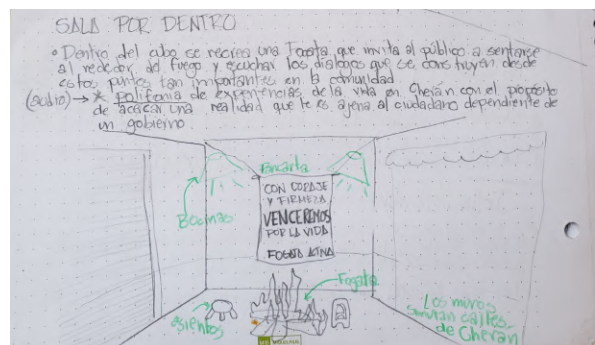 SALA POR DENTRO
• Dentro del cubo se recrea una Fogata, que invita al público a sentarse
al rededor del fuego y escuchar los dialogos que se construyen desde
estos puntos tan importantes en la comunidad.
(audio) → * polifonía de experiencias de la vida en Cherán con el propósito
de acercar una realidad que le es ajena al ciudadano dependiente de
un gobierno
Pancarta
Bocinas
CON CORAJE
Y FIRMEZA
VENCEREMOS
POR LA VIDA
FOGATA
Fogata
asientos
Los muros
simulan calles
de Cherán